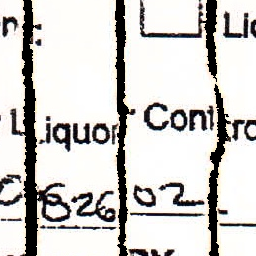 n: Lic
Liquor Contro
8-26 02